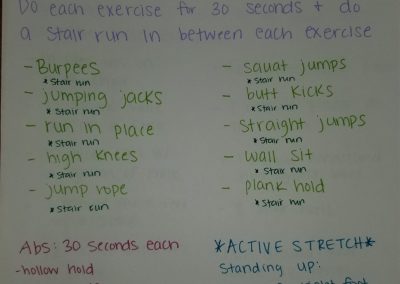 Do each exercise for 30 seconds + do
a stair run in between each exercise
- Burpees
* Stair run
- jumping jacks
* Stair run
- run in place
* Stair run
- high knees
* Stair run
- jump rope
* Stair run
- squat jumps
* Stair run
- butt kicks
* Stair run
- straight jumps
* Stair run
- wall sit
* Stair run
- plank hold
* Stair run
Abs: 30 seconds each
- hollow hold
*ACTIVE STRETCH*
Standing up: